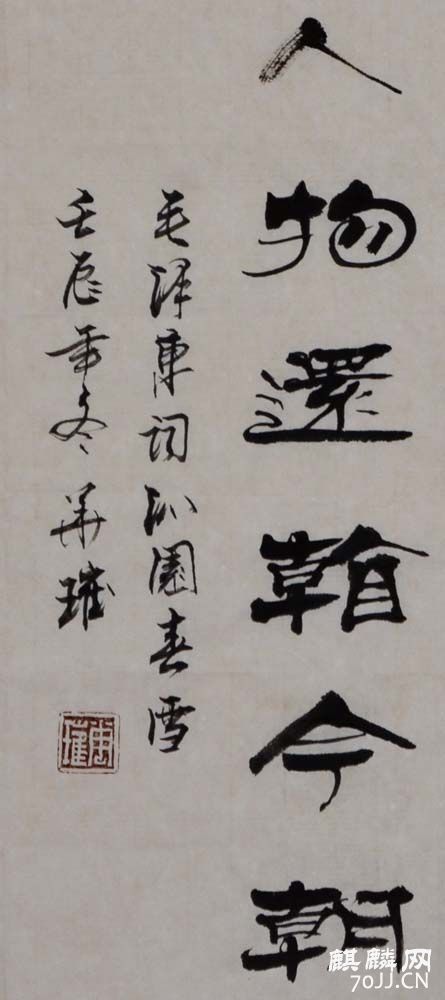 人物還看今朝
毛澤東詞沁園春雪
壬辰年冬 華璀
麒麟网
70JJ.CN